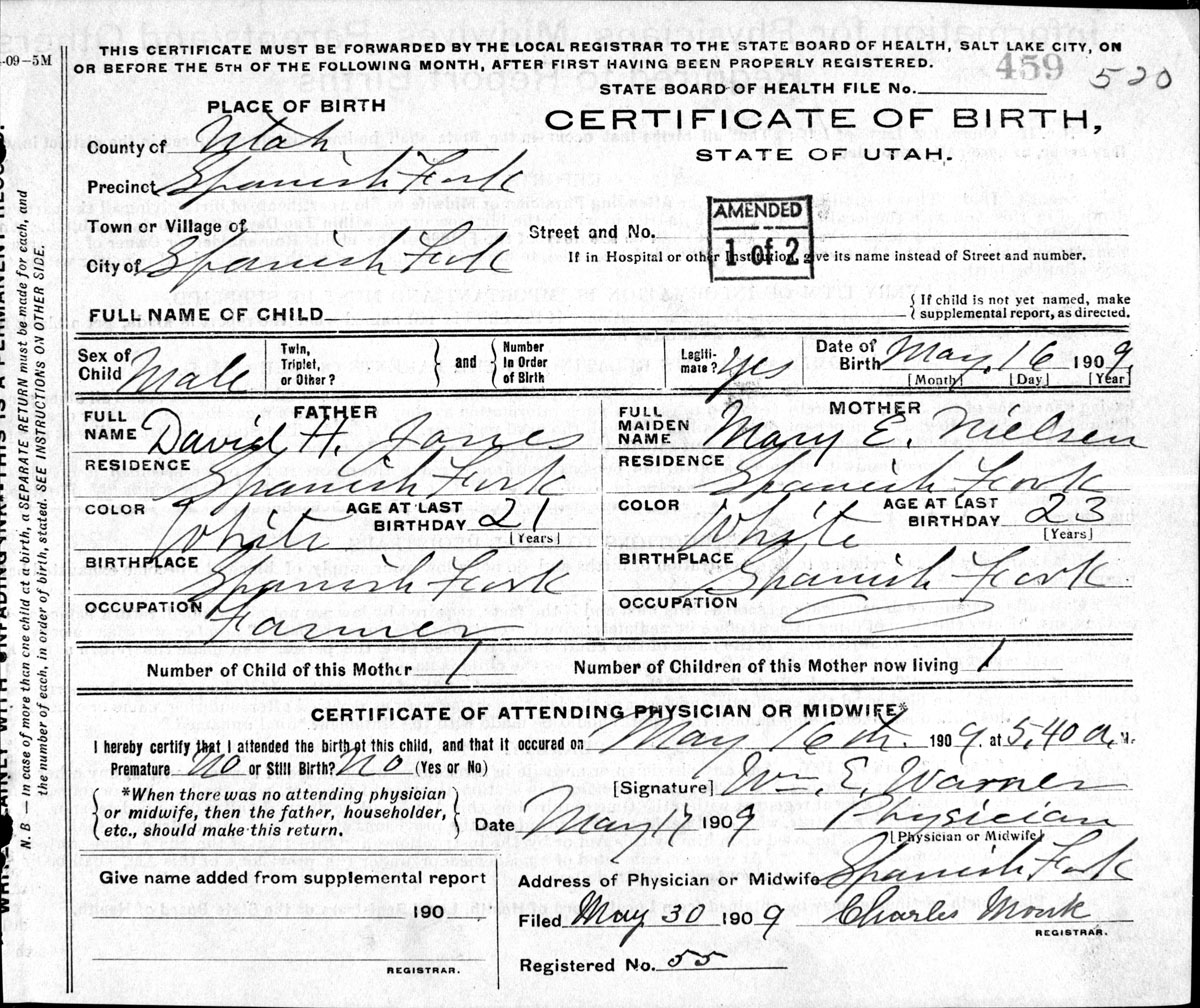 -09-5M
THIS CERTIFICATE MUST BE FORWARDED BY THE LOCAL REGISTRAR TO THE STATE BOARD OF HEALTH, SALT LAKE CITY, ON
OR BEFORE THE 5TH OF THE FOLLOWING MONTH, AFTER FIRST HAVING BEEN PROPERLY REGISTERED.
459 520
STATE BOARD OF HEALTH FILE No.
PLACE OF BIRTH
CERTIFICATE OF BIRTH,
STATE OF UTAH.
County of Utah
Precinct Spanish Fork
Town or Village of
Street and No.
AMENDED
1 of 2
City of Spanish Fork
If in Hospital or other Institution, give its name instead of Street and number.
FULL NAME OF CHILD
{ If child is not yet named, make
supplemental report, as directed.
Sex of Child Male
Twin, Triplet, or Other? } and { Number in Order of Birth
Legiti-mate? yes
Date of Birth May. 16 1909.
[Month] [Day] [Year]
FATHER
FULL NAME David H. Jones
RESIDENCE Spanish Fork
COLOR White AGE AT LAST BIRTHDAY 21
[Years]
BIRTHPLACE Spanish Fork
OCCUPATION Farmer
MOTHER
FULL MAIDEN NAME Mary E. Nielsen
RESIDENCE Spanish Fork
COLOR White AGE AT LAST BIRTHDAY 23
[Years]
BIRTHPLACE Spanish Fork
OCCUPATION
Number of Child of this Mother 1 Number of Children of this Mother now living 1
CERTIFICATE OF ATTENDING PHYSICIAN OR MIDWIFE*
I hereby certify that I attended the birth of this child, and that it occured on May 16th. 1909. at 5,40 a. M.
Premature No or Still Birth? No (Yes or No)
{ *When there was no attending physician
or midwife, then the father, householder,
etc., should make this return. }
[Signature] Wm. E. Warner
Date May 17 1909 Physician
[Physician or Midwife]
Give name added from supplemental report
190
REGISTRAR.
Address of Physician or Midwife Spanish Fork
Filed May 30 1909 Charles Monk
REGISTRAR.
Registered No. 55
N. B. — In case of more than one child at a birth, a SEPARATE RETURN must be made for each, and
the number of each, in order of birth, stated. SEE INSTRUCTIONS ON OTHER SIDE.